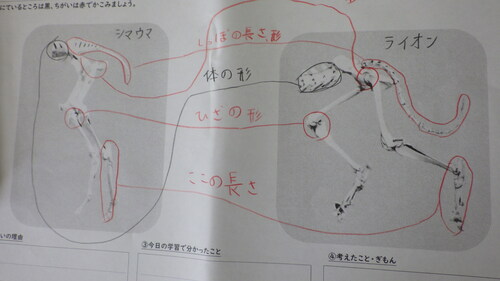 にているところは黒、ちがいは赤でかこみましょう。
シマウマ
しっぽの長さ,形
ライオン
体の形
ひざの形
ここの長さ
いの理由
③今日の学習で分かったこと
④考えたこと・ぎもん